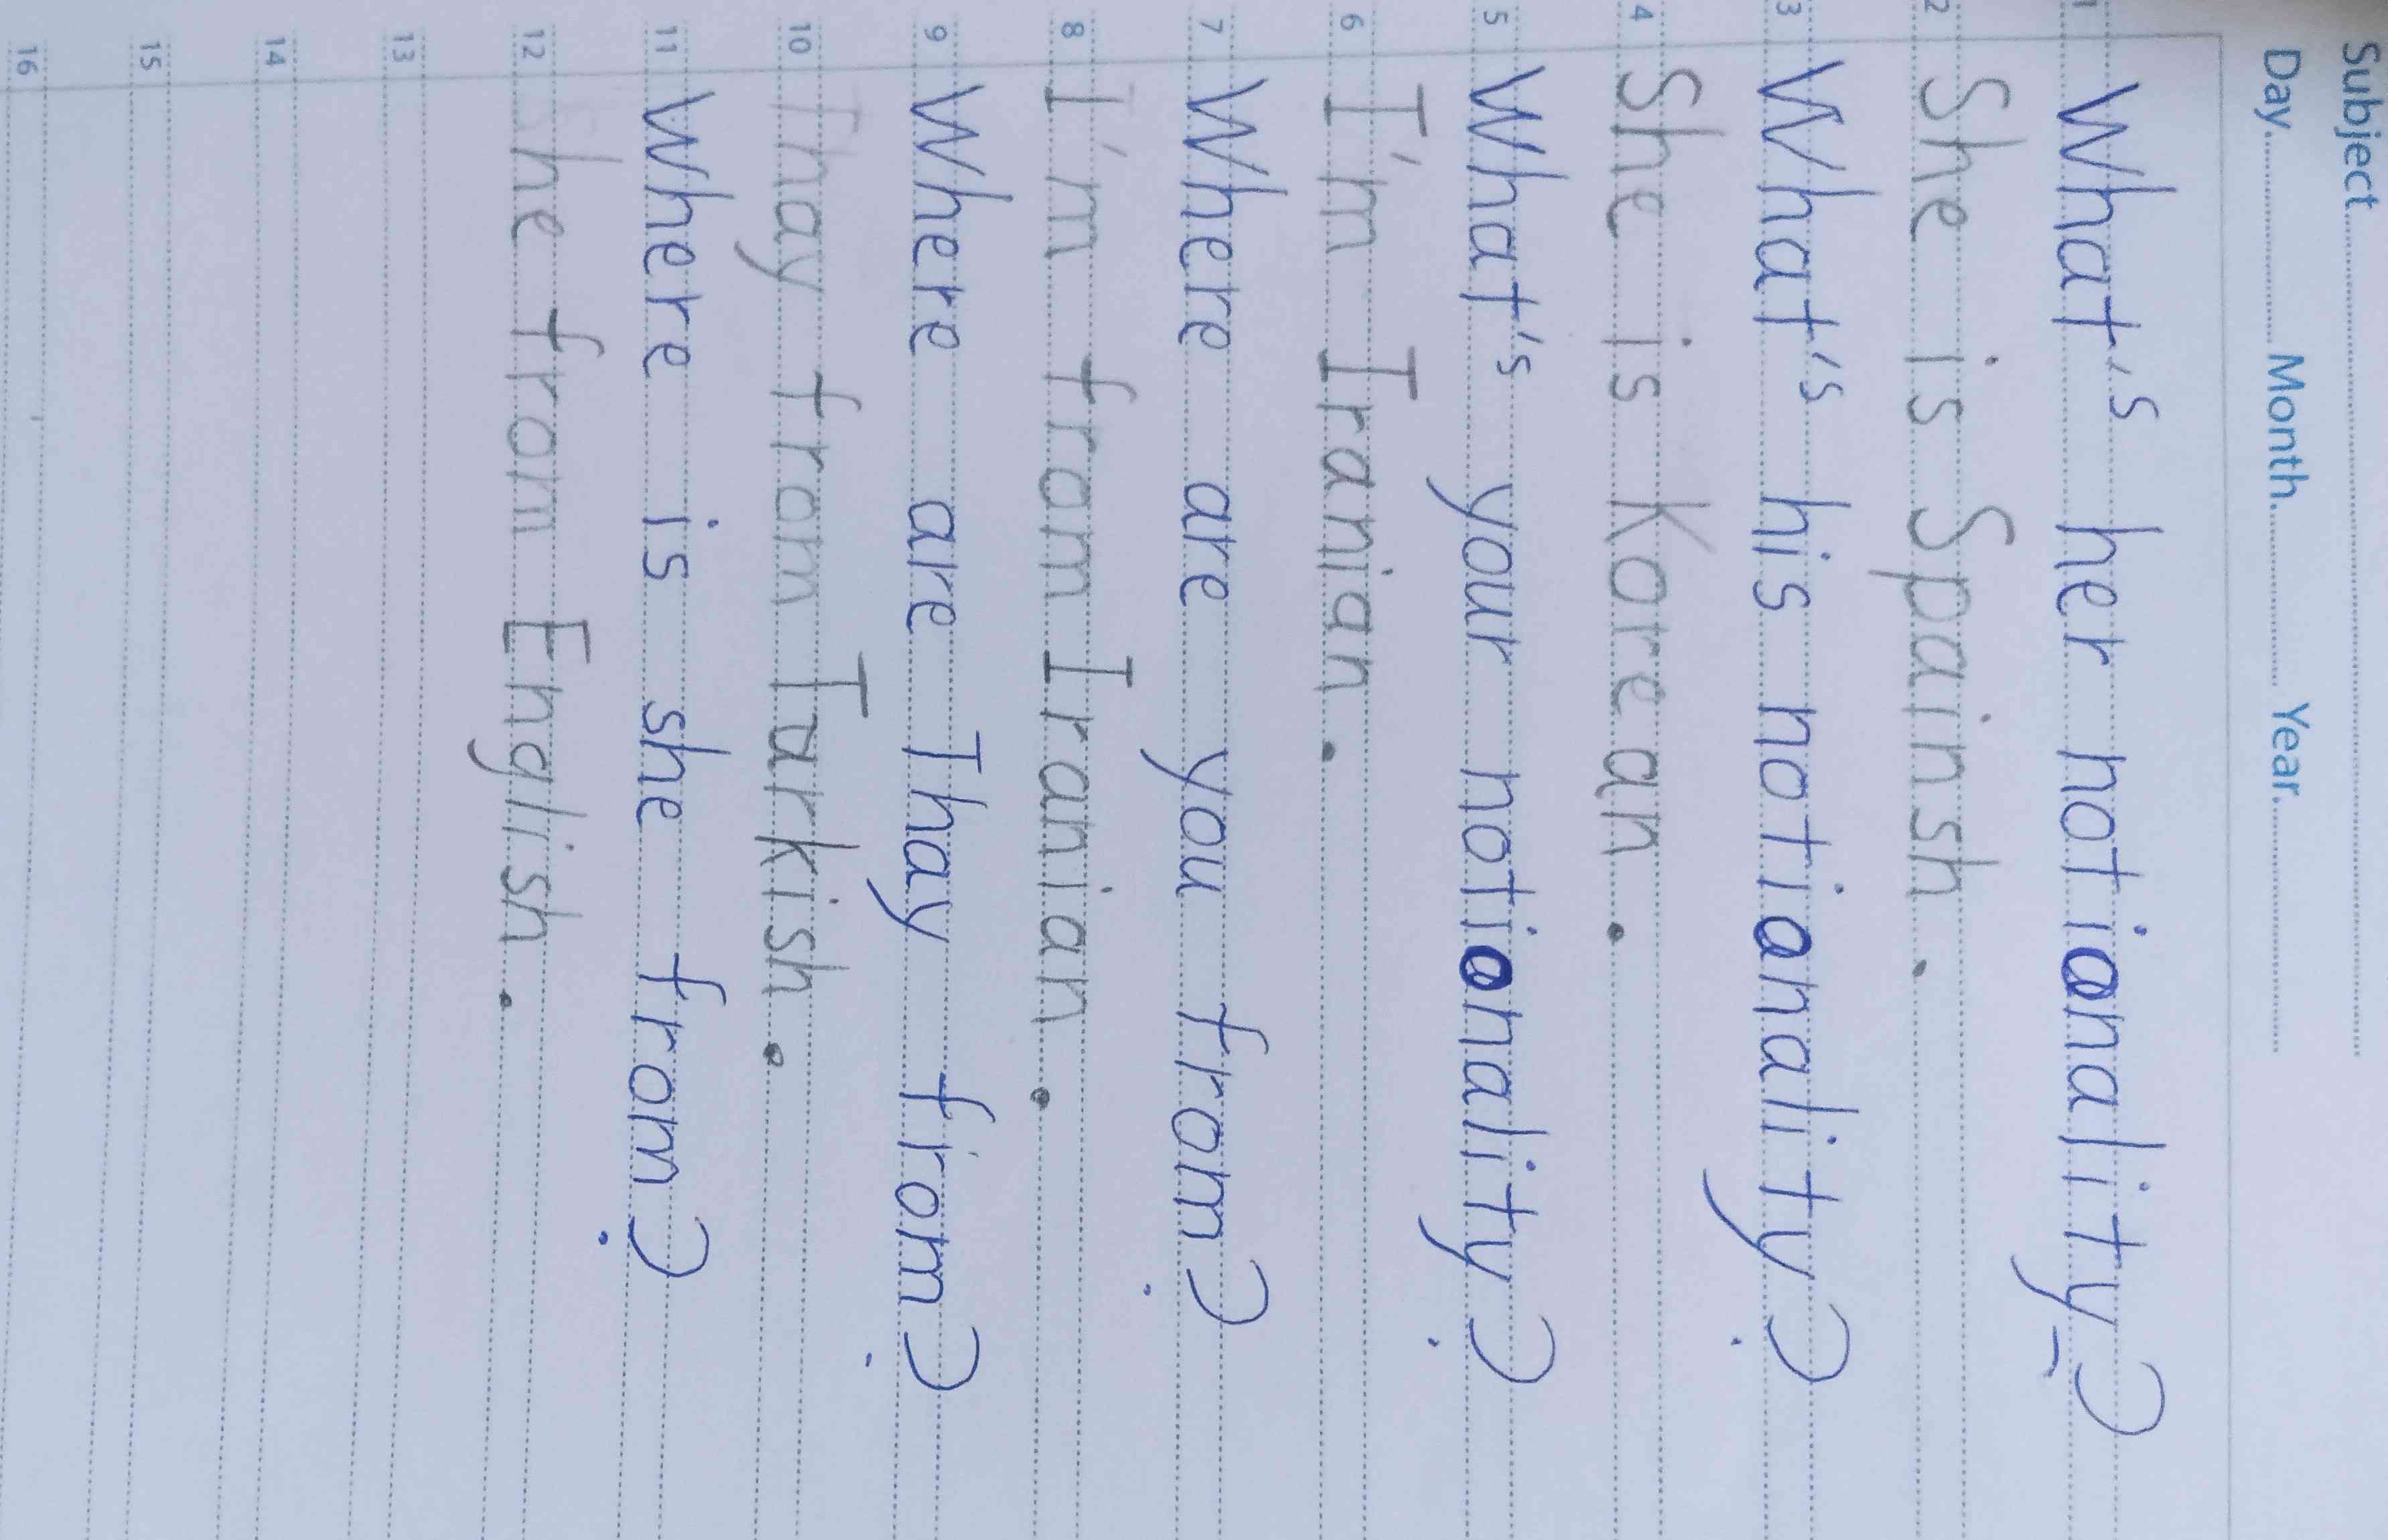 Subject
Day Month Year
1 What's her notionality?
2 She is Spainsh.
3 What's his notianality?
4 She is Korean.
5 What's your notionality?
6 I'm Iranian.
7 Where are you from?
8 I'm from Iranian.
9 Where are Thay from?
10 Thay from Tarkish.
11 Where is she from?
12 She from English.
13
14
15
16